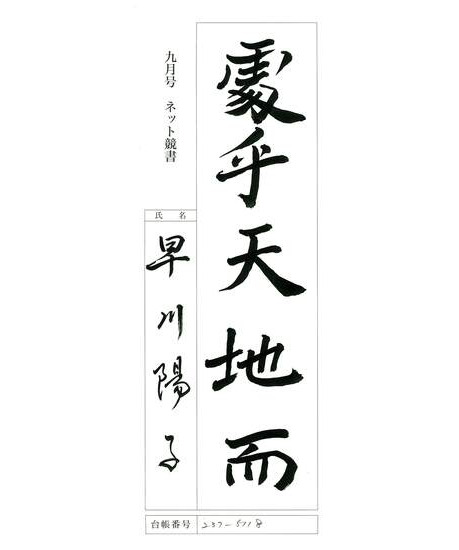 處乎天地而
九月号 ネット競書
氏名
早川陽子
台帳番号 237-5718